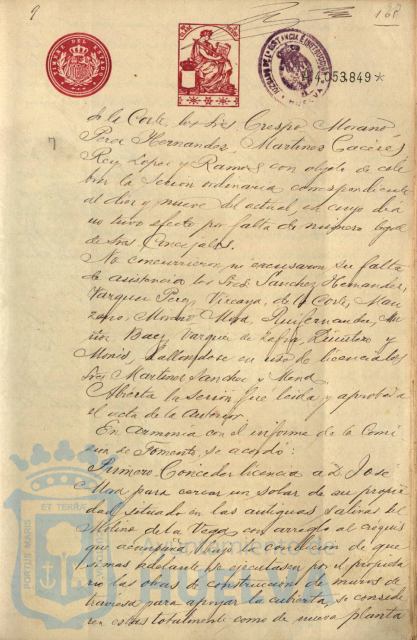 9
168
TIMBRE DEL ESTADO
4.053.849*
de la Corte, los Sres Crespo, Morano
Pera Hernandez, Martinez Caceres
Rey Lopez y Ramos con objeto de cele
brar la sesion ordinaria correspondiente
al diez y nueve del actual, en cuyo dia
no tuvo efecto por falta de número legal
de Sres Concejales.
No concurrieron, ni excusaron su falta
de asistencia los Sres Sanchez Hernandez,
Vazquez Perez, Vizcaya, de la Corte, Man
zano, Moreno
Baez, Vazquez de Zafra, Quintero y
hallandose en uso de licencia los
Sres Martinez Sanchez y Mora
Abierta la sesion fue leida y aprobada
el acta de la anterior.
En armonia con el informe de la Comi
sion de Fomento, se acordó:
Primero. Conceder licencia a D. José
para cercar un solar de su propie
dad situado en las antiguas salinas del
Molino de la Vega con arreglo al croquis
que acompaña y bajo la condicion de que
si mas adelante se ejecutasen por el propieta
rio las obras de construccion de muros de
traviesa para apoyar la cubierta, se conside
ren estas totalmente como de nueva planta
PORTUS MARIS ET TERRAE
Ayuntamiento de
HUELVA